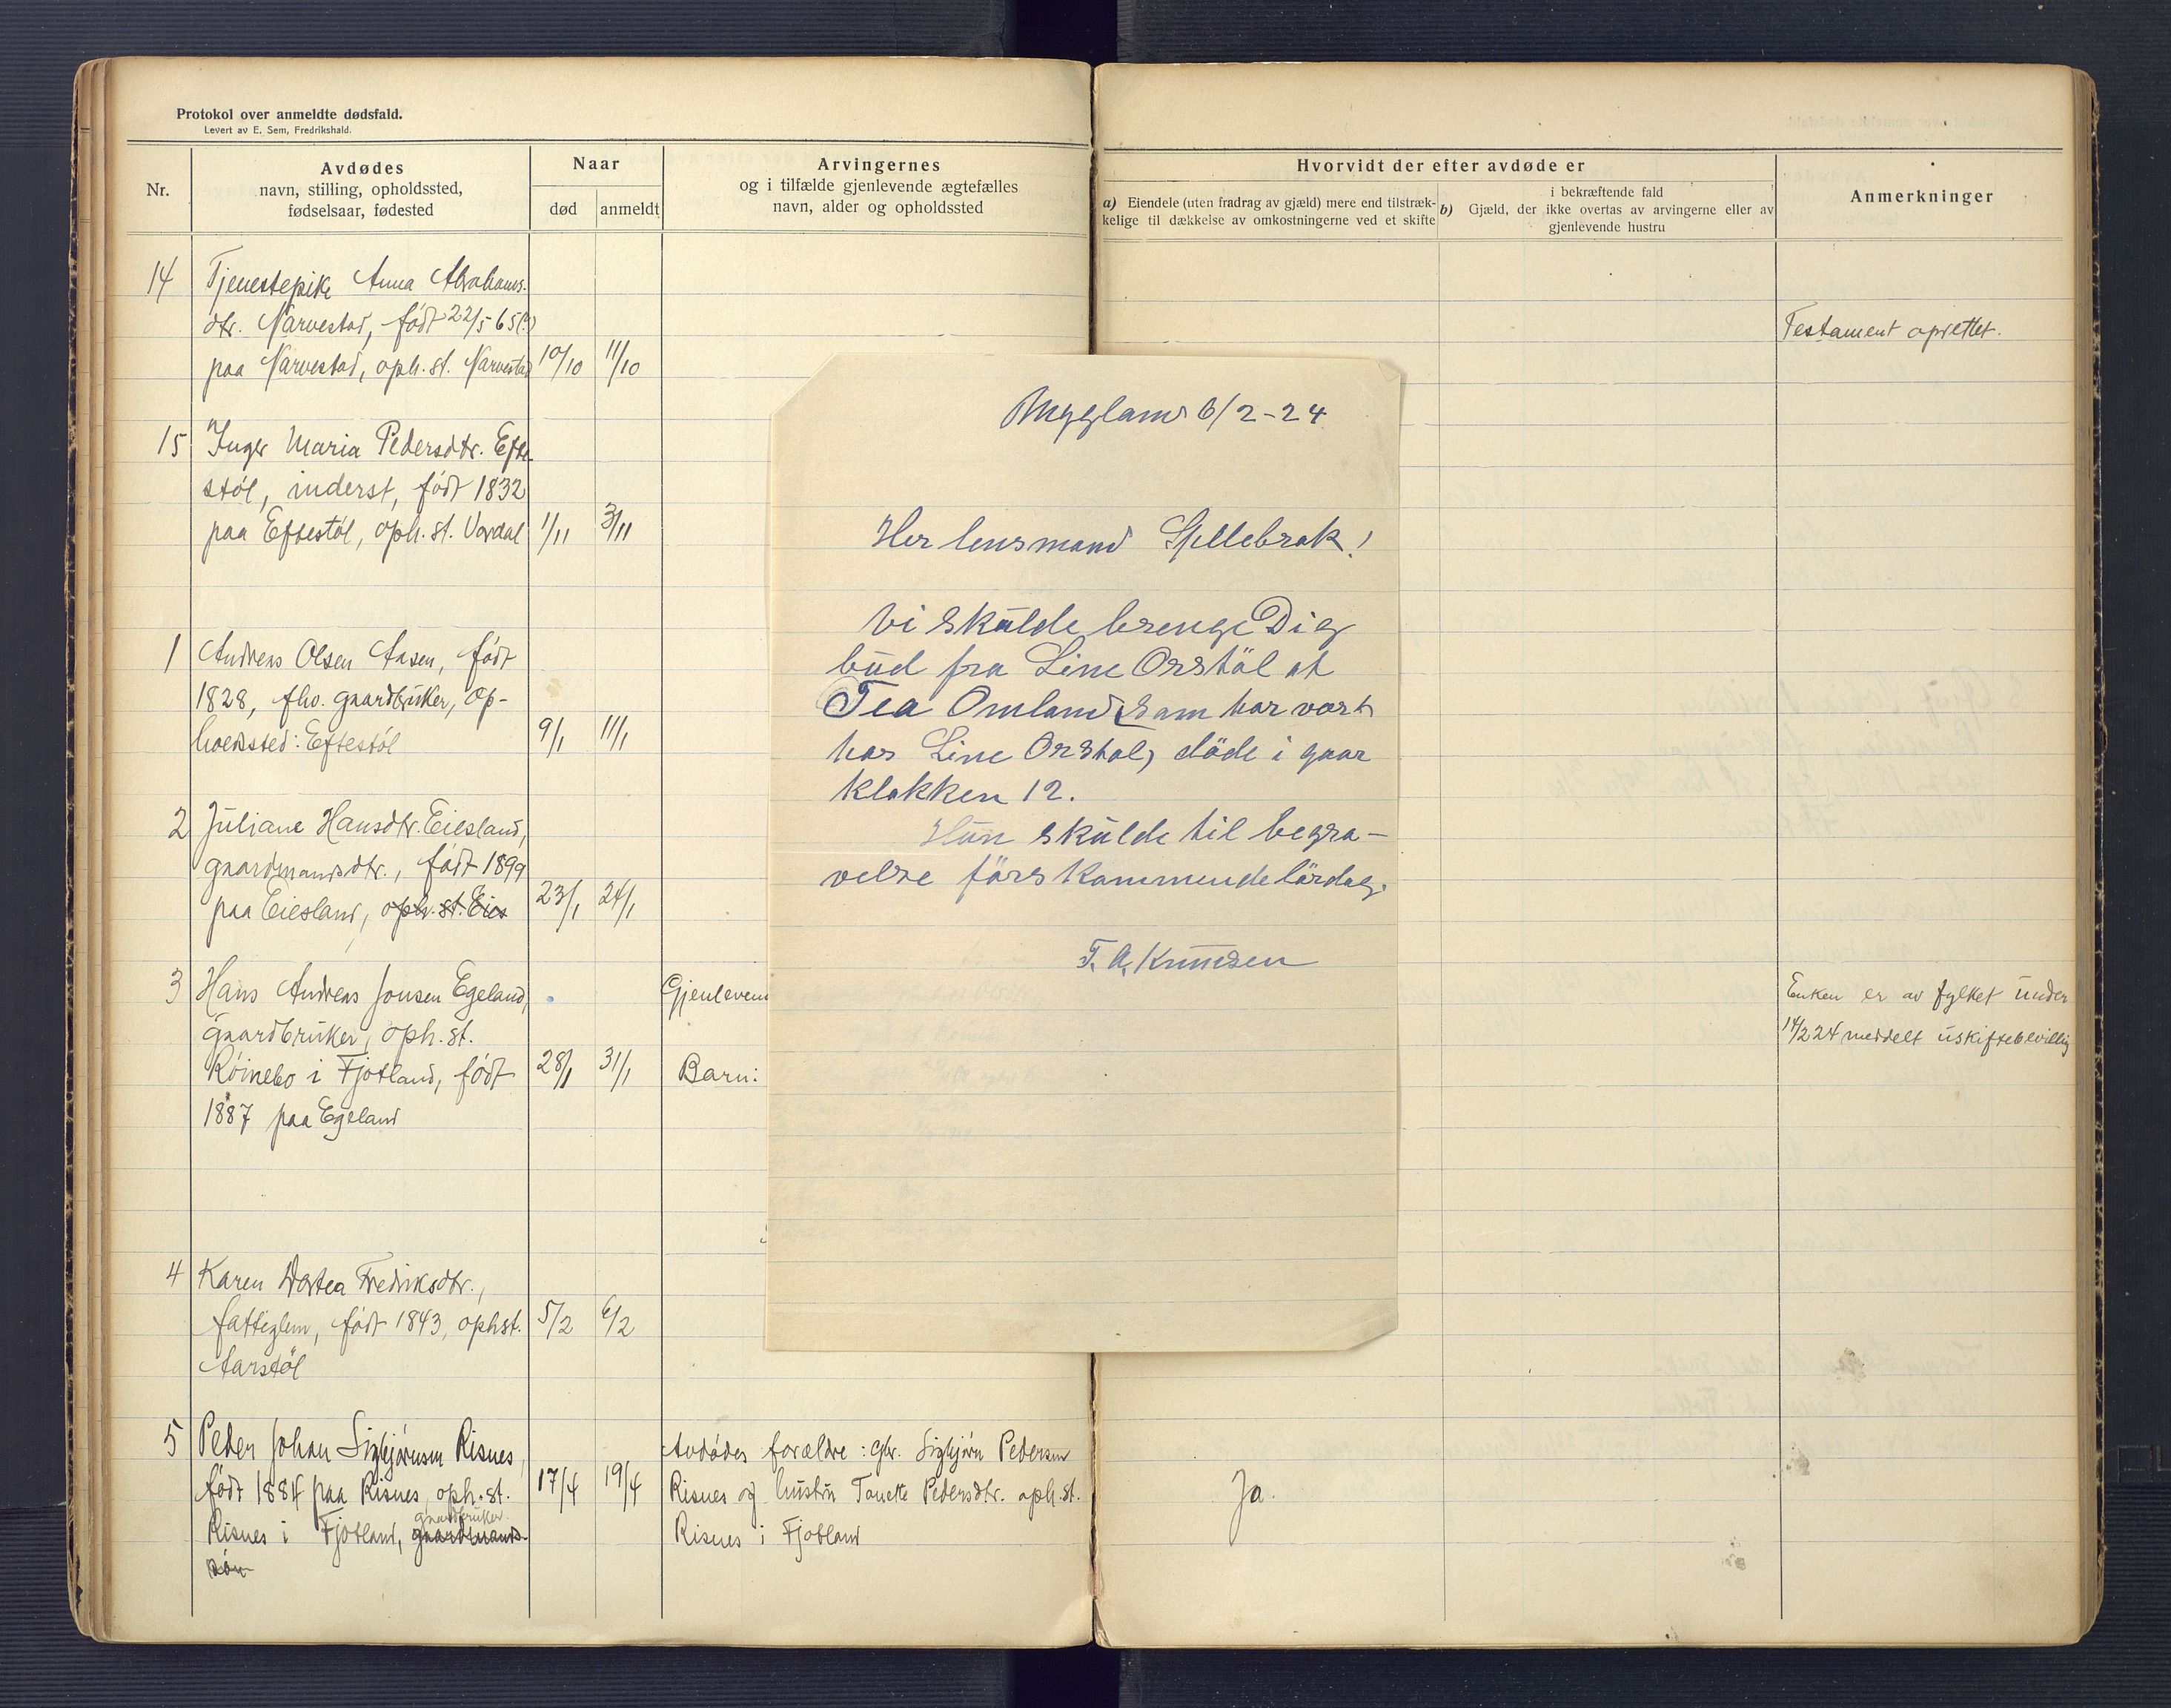 Protokol over anmeldte dødsfald.
Levert av E. Sem, Fredrikshald.
Nr.
Avdødes
navn, stilling, opholdssted,
fødselsaar, fødested
Naar
død
anmeldt
Arvingernes
og i tilfælde gjenlevende ægtefælles
navn, alder og opholdssted
Hvorvidt der efter avdøde er
a) Eiendele (uten fradrag av gjæld) mere end tilstræk-
kelige til dækkelse av omkostningerne ved et skifte
i bekræftende fald
b) Gjæld, der ikke overtas av arvingerne eller av
gjenlevende hustru
Anmerkninger
14 Tjenestepike Anna Abrahams-
dtr. Narvestad, født 22/5 65(?)
paa Narvestad, oph.st. Narvestad 10/10 11/10
Testament oprettet.
15 Inger Maria Pedersdtr. Efte-
støl, inderst, født 1832
paa Eftestøl, oph.st. Vordal 1/11 3/11
1 Andreas Olsen Aasen, født
1828, fhv. gaardbruker, op-
holdssted: Eftestøl 9/1 11/1
2 Juliane Hansdtr. Eiesland,
gaardmandsdtr., født 1899
paa Eiesland, oph.st. Eies 23/1 24/1
3 Hans Andreas Jonsen Egeland,
gaardbruker, oph.st.
Røinebo i Fjotland, født 28/1 31/1
1887 paa Egeland
Gjenleven
Barn:
Enken er av fylket under
14/2 24 meddelt uskiftebevillig
4 Karen Dortea Fredriksdtr.,
fattiglem, født 1843, ophst. 5/2 6/2
Aarstøl
5 Peder Johan Sigbjørnsen Risnes,
født 1884 paa Risnes, oph.st. 17/4 19/4
gaardbruker
Risnes i Fjotland, gaardmands-
søn
Avdødes forældre: gbr. Sigbjørn Pedersen
Risnes og hustru Tonette Pedersdtr. oph.st.
Risnes i Fjotland
Ja.
Mygland 6/2-24
Her lensmand Spillebrok!
Vi skulde brenge Dig
bud fra Line Orstöl at
Tea Omland (som har vært
hos Line Orstöl) döde i gaar
klokken 12.
Hun skulde til begra-
velse förs kommende lördag.
T. A. Knudsen